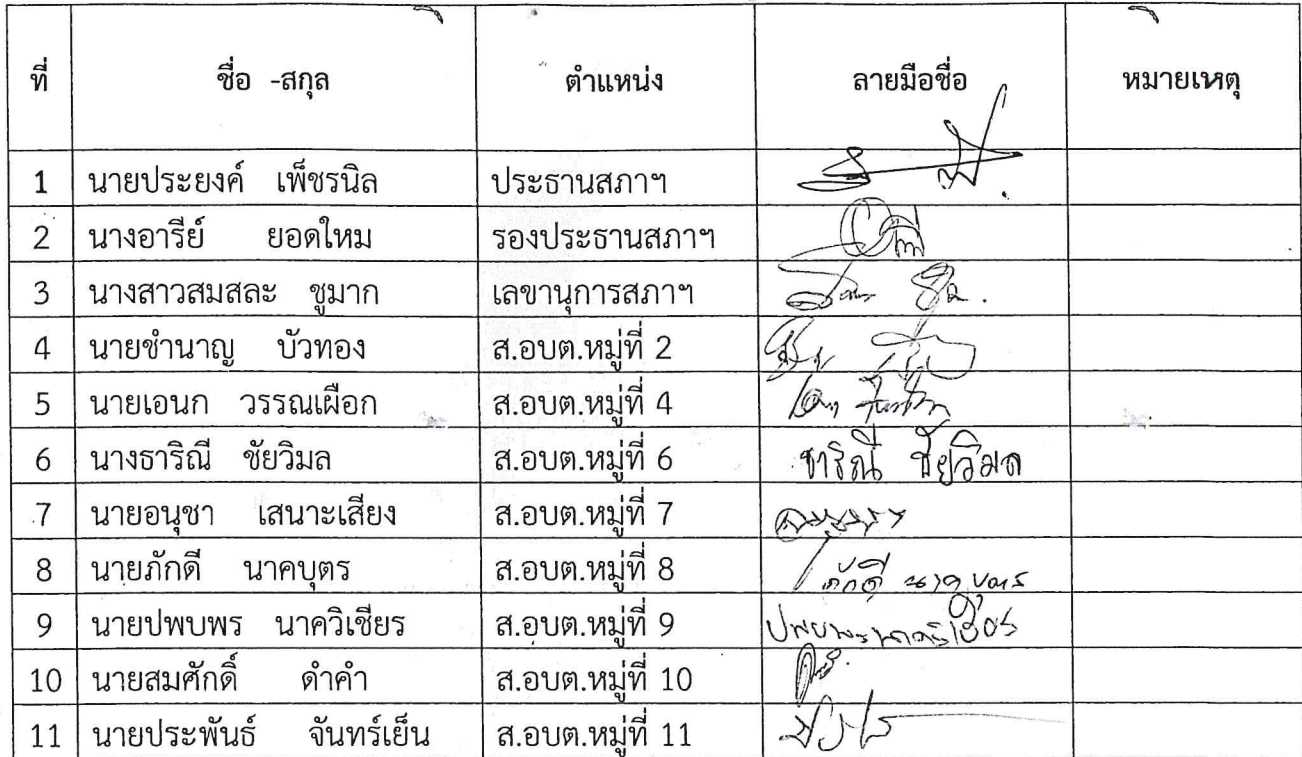 ที่ ชื่อ -สกุล ตำแหน่ง ลายมือชื่อ หมายเหตุ
1 นายประยงค์ เพ็ชรนิล ประธานสภาฯ
2 นางอารีย์ ยอดใหม รองประธานสภาฯ
3 นางสาวสมสละ ชูมาก เลขานุการสภาฯ
4 นายชำนาญ บัวทอง ส.อบต.หมู่ที่ 2
5 นายเอนก วรรณเผือก ส.อบต.หมู่ที่ 4
6 นางธาริณี ชัยวิมล ส.อบต.หมู่ที่ 6 ธาริณี ชัยวิมล
7 นายอนุชา เสนาะเสียง ส.อบต.หมู่ที่ 7
8 นายภักดี นาคบุตร ส.อบต.หมู่ที่ 8 ภักดี นาคบุตร
9 นายปพบพร นาควิเชียร ส.อบต.หมู่ที่ 9
10 นายสมศักดิ์ ดำคำ ส.อบต.หมู่ที่ 10
11 นายประพันธ์ จันทร์เย็น ส.อบต.หมู่ที่ 11